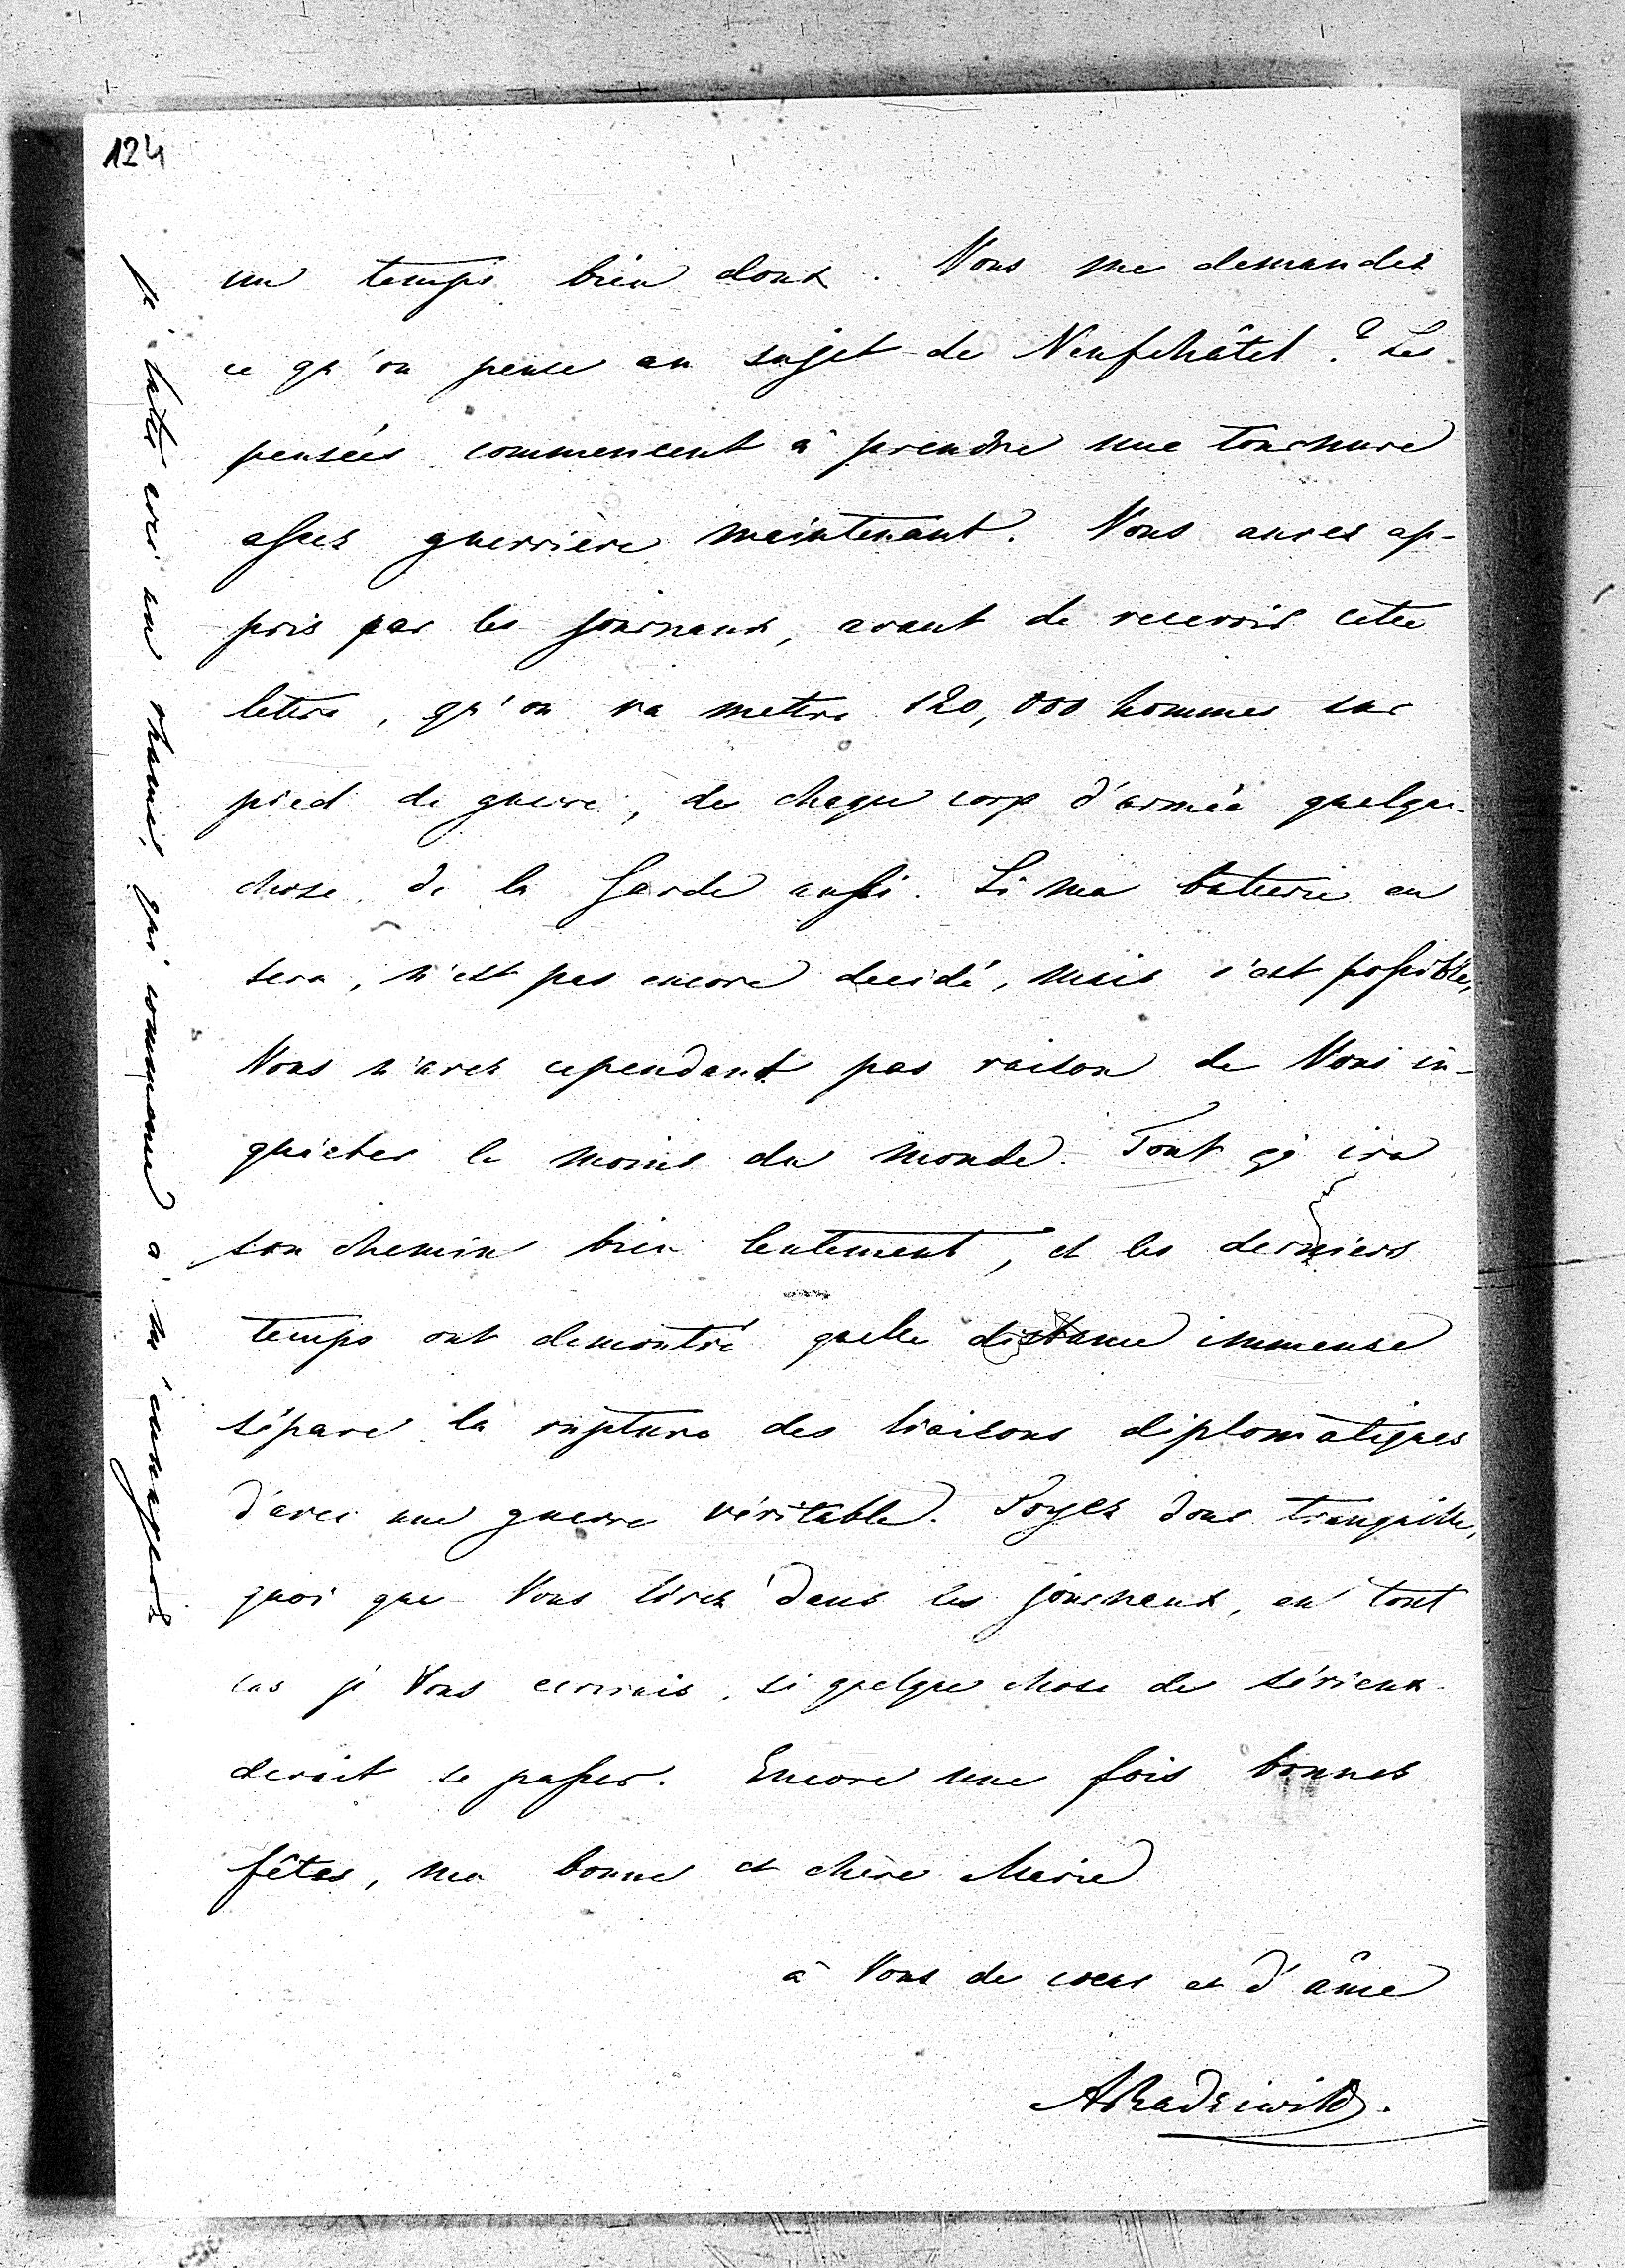 124
un temps bien doux. Vous me demandez
ce qu'on pense au sujet de Neufchâtel? Les
pensées commencent à prendre une tournure
assez guerrière maintenant. Vous aurez ap-
pris par les journaux, avant de recevoir cette
lettre, qu'on va mettre 120,000 hommes sur
pied de guerre, de chaque corp d'armée quelque
chose, de la Garde aussi. Si ma batterie en
sera, n'est pas encore decidé, mais c'est possible,
Vous n'avez cependant pas raison de Vous in-
quieter le moins du monde. Tout ça ira
son chemin bien lentement, et les derniers
temps ont demontré quelle distance immense
sépare la rupture des liaisons diplomatiques
d'avec une guerre véritable. Soyez donc tranquille,
quoi que Vous lirez dans les journaux, en tout
cas je Vous ecrirais, si quelque chose de sérieux
devait se passer. Encore une fois bonnes
fêtes, ma bonne et chère Marie
à Vous de coeur et d'âme
ARadziwill.
je ici un qui commence à